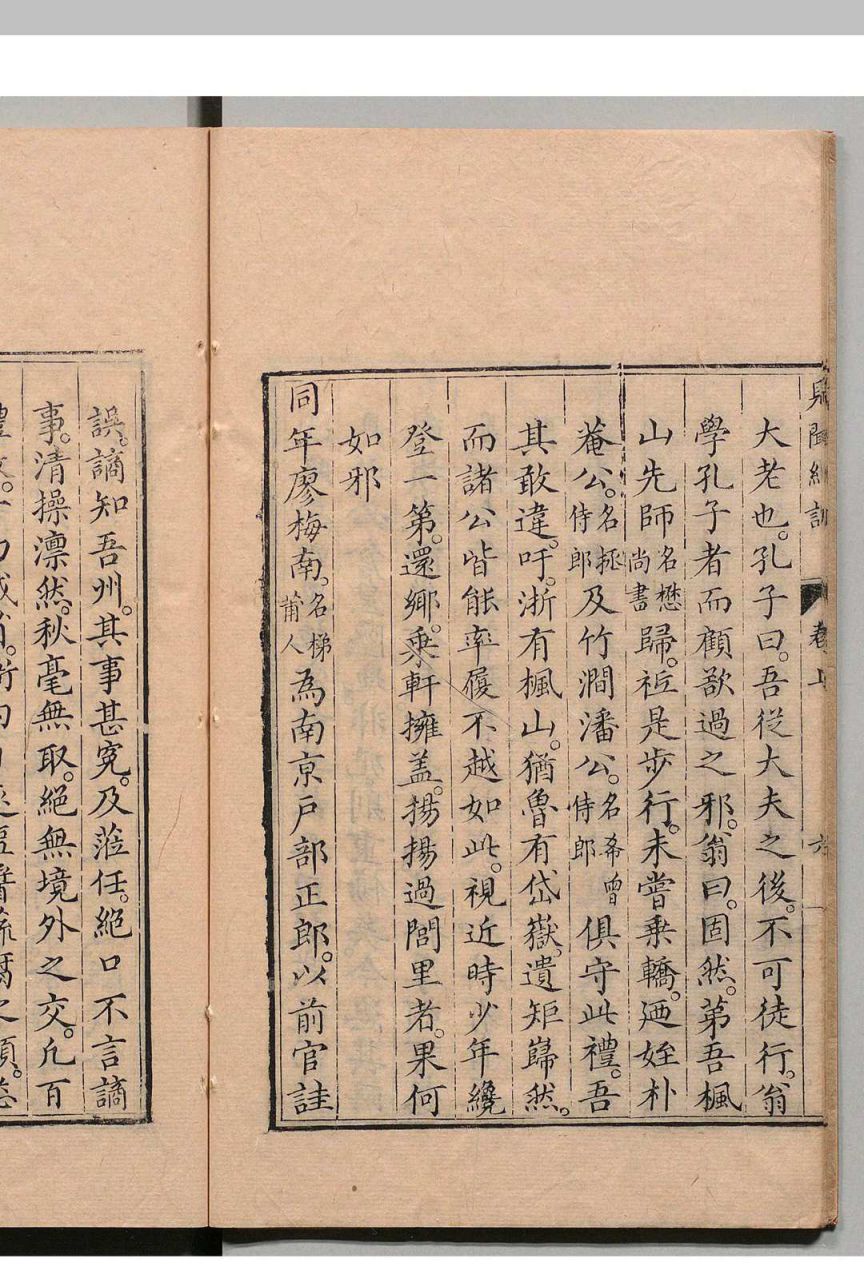 見聞紀訓 卷上 六
大老也。孔子曰。吾從大夫之後。不可徒行。翁
學孔子者而顧欲過之邪。翁曰。固然。第吾楓
山先師名懋尚書歸。祗是步行。未嘗乘轎。廼姪朴
菴公。名拯侍郎及竹澗潘公。名希曾侍郎俱守此禮。吾
其敢違。吁。浙有楓山。猶魯有岱嶽。遺矩巋然。
而諸公皆能率履不越如此。視近時少年纔
登一第。還鄉。乘軒擁蓋。揚揚過閭里者。果何
如邪
同年廖梅南。名梯莆人為南京戶部正郎。以前官詿
誤。謫知吾州。其事甚寃。及蒞任。絕口不言謫
事。清操凛然。秋毫無取。絕無境外之交。凢百